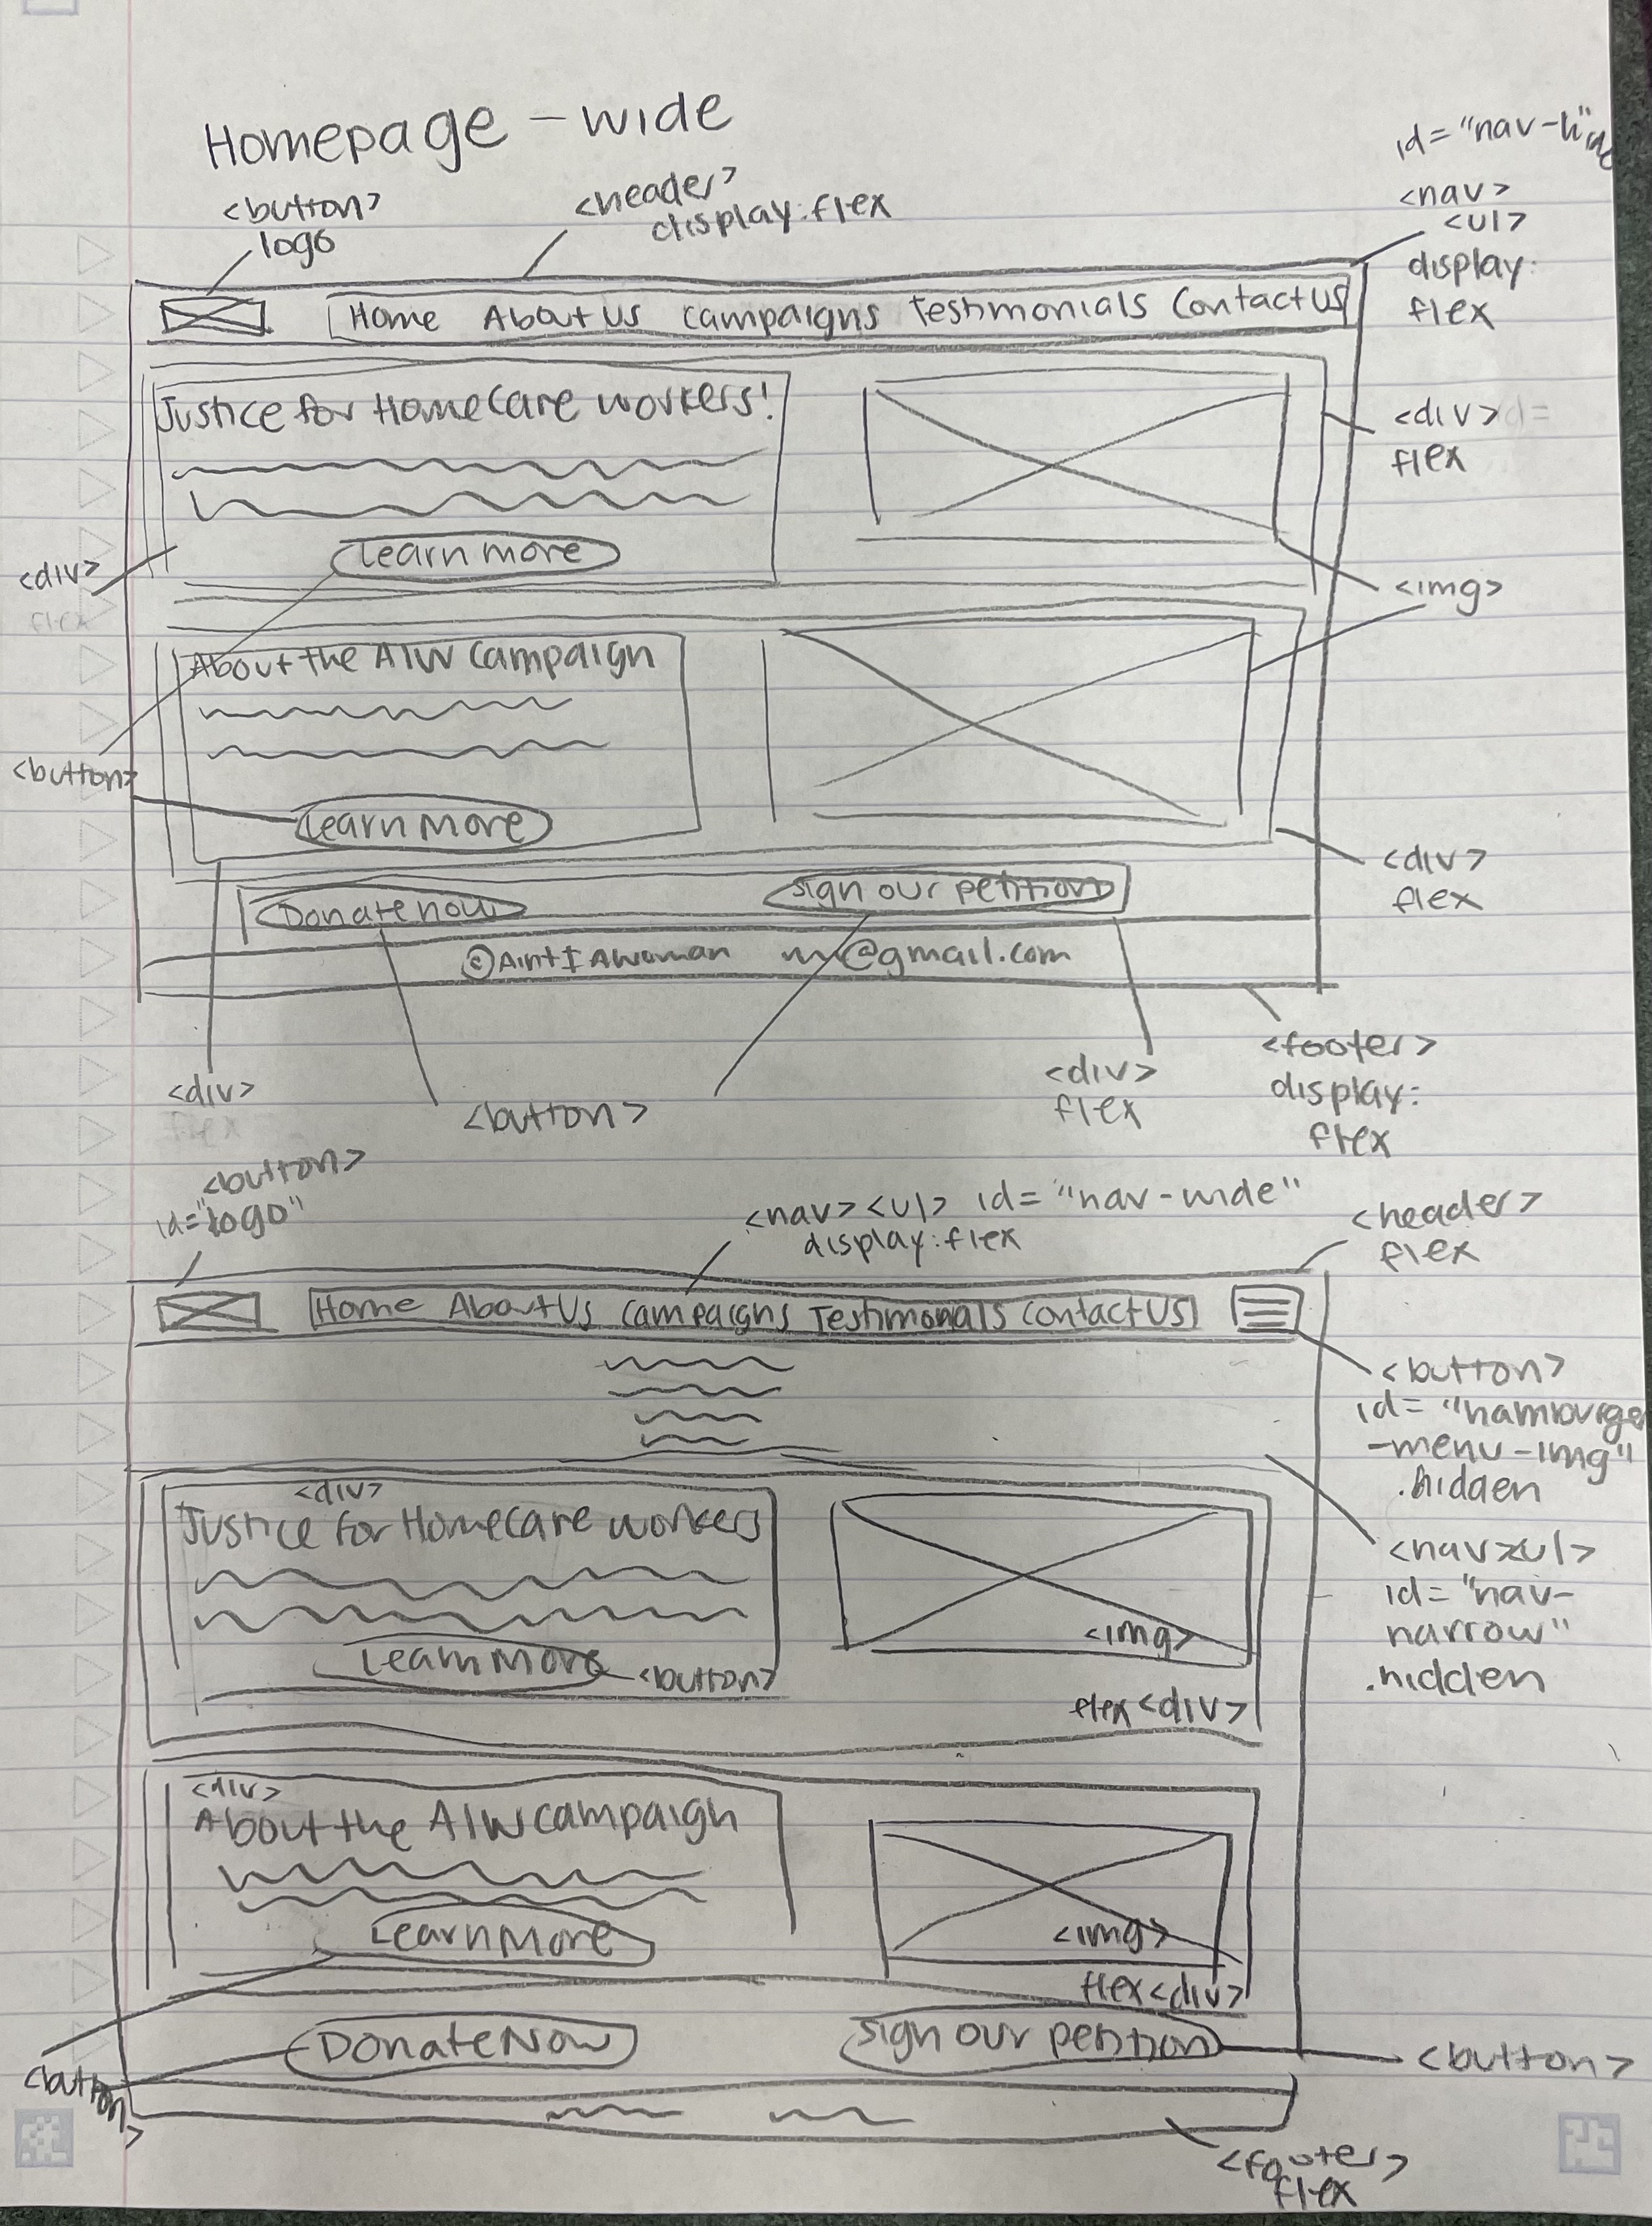 Homepage - wide
id="nav-
<button>
logo
<header>
display:flex
<nav>
<ul>
display:
flex
Home About Us Campaigns Testimonials Contact Us
Justice for Homecare workers!
<div>
flex
Learn more
<div>
flex
<img>
About the AIW Campaign
<button>
Learn More
<div>
flex
Donate now
Sign our petition
©Aint I A Woman
@gmail.com
<div>
flex
<button>
<div>
flex
<footer>
display:
flex
<button>
id="logo"
<nav><ul> id="nav-wide"
display:flex
<header>
flex
Home About Us Campaigns Testimonials Contact US
<button>
id="hamburger
-menu-img"
.hidden
<div>
Justice for Homecare workers
<nav><ul>
id="nav-
narrow"
.hidden
<img>
Learn More
<button>
flex<div>
<div>
About the AIW campaign
Learn More
<img>
flex<div>
Donate Now
Sign our petition
<button>
<button>
<footer>
flex